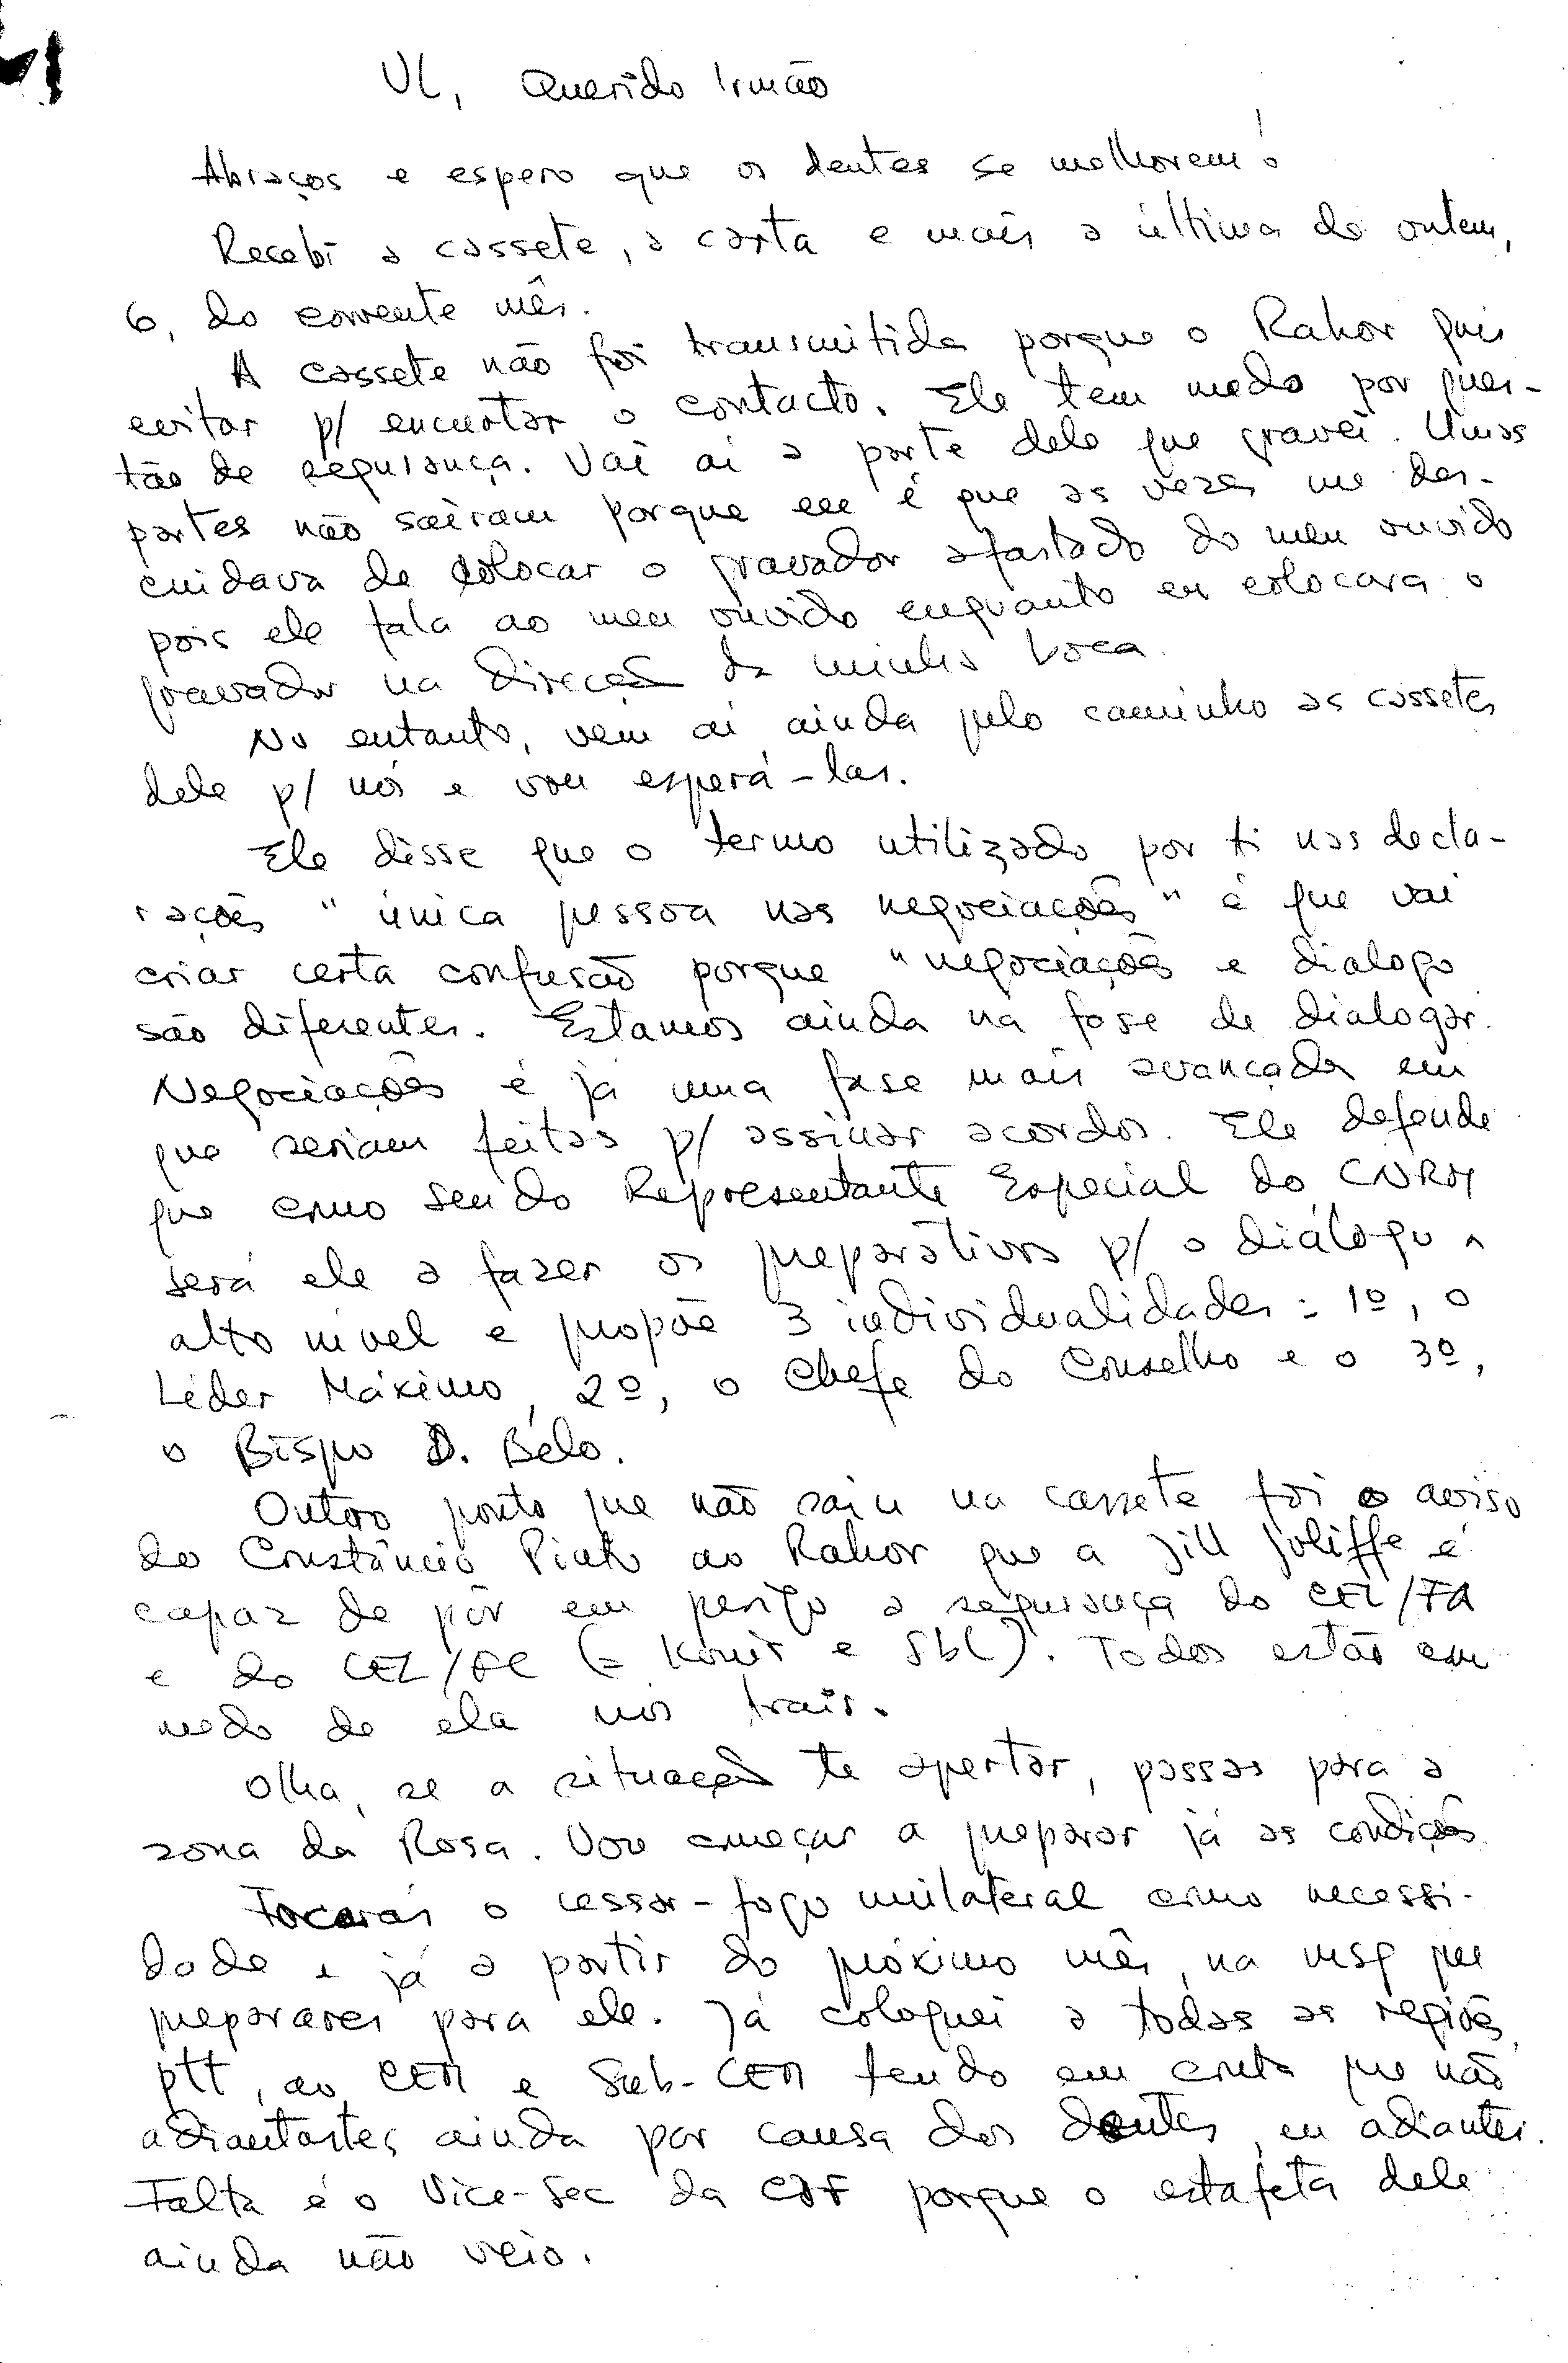 VL, Querido Irmão
Abraços e espero que os dentes se melhorem!
Recebi a cassete, a carta e mais a última de ontem,
6, do corrente mês.
A cassete não foi transmitida porque o Rahor quis
evitar p/ encurtar o contacto. Ele tem medo por ques-
tão de segurança. Vai aí a parte dele que gravei. Umas
partes não sairam porque eu é que as vezes me des-
cuidava de colocar o gravador afastado do meu ouvido
pois ele fala ao meu ouvido enquanto eu colocava o
gravador na direcção da minha boca.
No entanto, vem aí ainda pelo caminho as cassetes
dele p/ nós e vou esperá-las.
Ele disse que o termo utilizado por ti nas decla-
rações "única pessoa nas negociações" é que vai
criar certa confusão porque "negociações e dialogo
são diferentes. Estamos ainda na fase de dialogar.
Negociações é já uma fase mais avançada em
que seriam feitas p/ assinar acordos. Ele defende
que como sendo Representante Especial do CNRM
será ele a fazer os preparativos p/ o diálogo a
alto nível e propõe 3 individualidades: 1º, o
Líder Máximo, 2º, o Chefe do Conselho e o 3º,
o Bispo D. Belo.
Outro ponto que não saiu na cassete foi o aviso
do Constâncio Pinto ao Rahor que a Jill Joliffe é
capaz de pôr em perigo a segurança do CEL/FA
e do CEL/FC (= Konis e Sbl). Todos estão em
medo de ela nos trair.
Olha, se a situação te apertar, passas para a
zona da Rosa. Vou começar a preparar já as condições.
Tocarás o cessar-fogo unilateral como necessi-
dade e já a partir do próximo mês, na msg que
preparares para ele. Já coloquei a todas as regiões,
ptt, ao CEM e Sub-CEM tendo em conta que não
adiantastes ainda por causa dos dentes, eu adiantei.
Falta é o Vice-Sec da CDF porque o estafeta dele
ainda não veio.